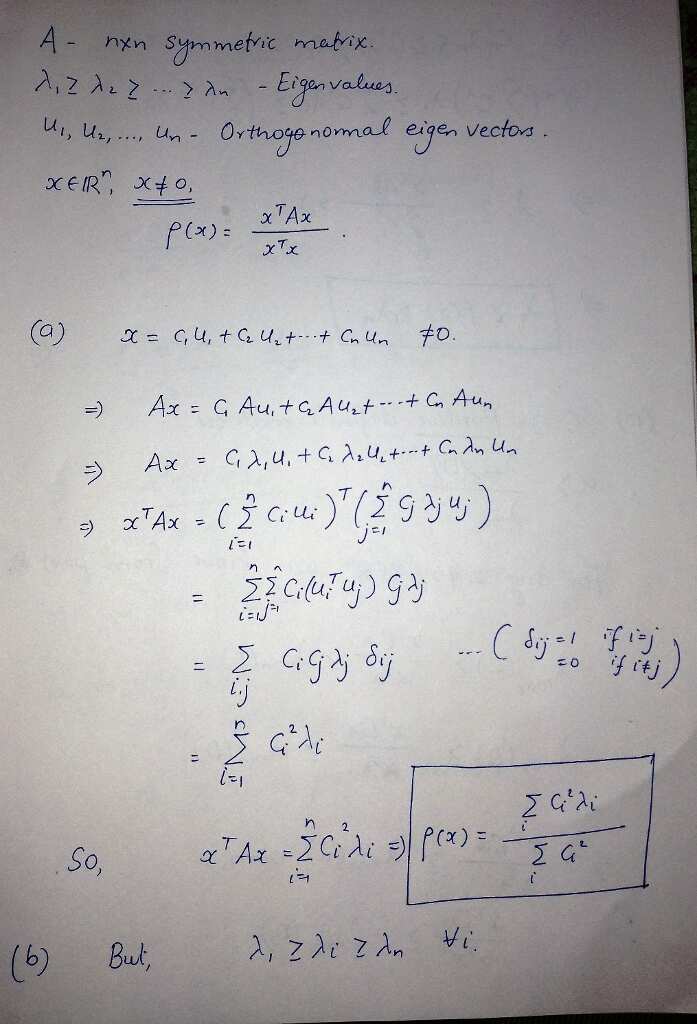 A - nxn symmetric matrix.
λ₁ ≥ λ₂ ≥ ... ≥ λn - Eigenvalues.
u₁, u₂, ..., un - Orthogonormal eigen vectors.
x ∈ ℝⁿ, x ≠ 0,
ρ(x) = xᵀAx / xᵀx .
(a) x = c₁u₁ + c₂u₂ + ... + cnun ≠ 0.
⇒) Ax = c₁Au₁ + c₂Au₂ + ... + cnAun
⇒ Ax = c₁λ₁u₁ + c₂λ₂u₂ + ... + cnλnun
⇒ xᵀAx = (∑ᵢ₌₁ⁿ cᵢuᵢ)ᵀ (∑ⱼ₌₁ⁿ cⱼλⱼuⱼ)
= ∑ᵢ₌₁ⁿ ∑ⱼ₌₁ⁿ cᵢ(uᵢᵀuⱼ) cⱼλⱼ
= ∑ᵢ,ⱼ cᵢcⱼλⱼ δᵢⱼ ... ( δᵢⱼ = 1 if i=j
= 0 if i≠j )
= ∑ᵢ₌₁ⁿ cᵢ²λᵢ
So, xᵀAx = ∑ᵢ₌₁ⁿ cᵢ²λᵢ ⇒ ρ(x) = ∑ᵢ cᵢ²λᵢ / ∑ᵢ cᵢ²
(b) But, λ₁ ≥ λᵢ ≥ λn ∀i.